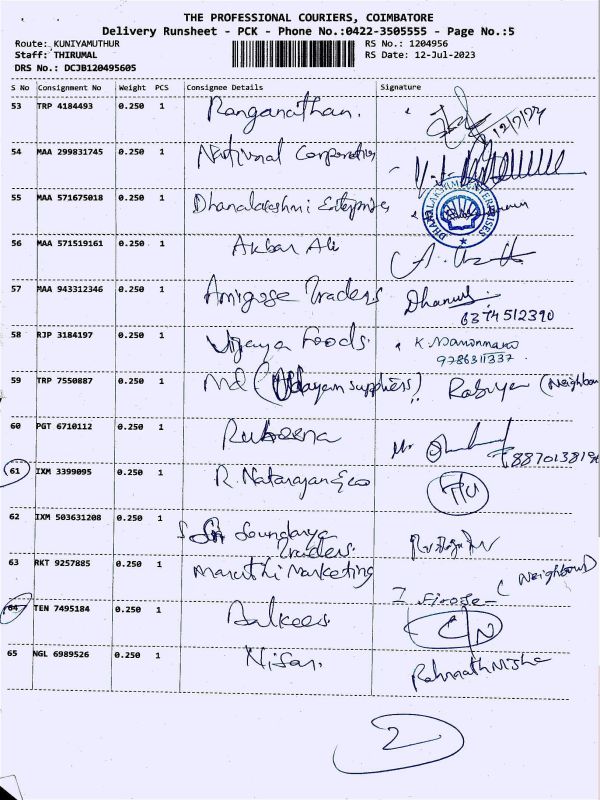 THE PROFESSIONAL COURIERS, COIMBATORE
Delivery Runsheet - PCK - Phone No.:0422-3505555 - Page No.:5
Route: KUNIYAMUTHUR
Staff: THIRUMAL
DRS No.: DCJB120495605
RS No.: 1204956
RS Date: 12-Jul-2023
S No Consignment No Weight PCS Consignee Details Signature
53 TRP 4184493 0.250 1 Ranganathan. 12/7/23
54 MAA 299831745 0.250 1 National Corporation
55 MAA 571675018 0.250 1 Dhanalakshmi Enterprises
DHANALAKSHMI ENTERPRISES
56 MAA 571519161 0.250 1 Akbar Ali
57 MAA 943312346 0.250 1 Traders Dhanus
6374512390
58 RJP 3184197 0.250 1 Vijaya Foods. K Manonmani
9786311337
59 TRP 7550887 0.250 1 Md (Udayam suppliers) Rabiya (Neighbou
60 PGT 6710112 0.250 1 Rubeena
887013819
61 IXM 3399095 0.250 1 R. Natarajan & co
62 IXM 503631208 0.250 1 Sri Soundarya
Traders.
63 RKT 9257885 0.250 1 Maruthi Marketing Firose (Neighbour)
64 TEN 7495184 0.250 1 Balkees CN
65 NGL 6989526 0.250 1 Nisar. Rahmathnisha
2